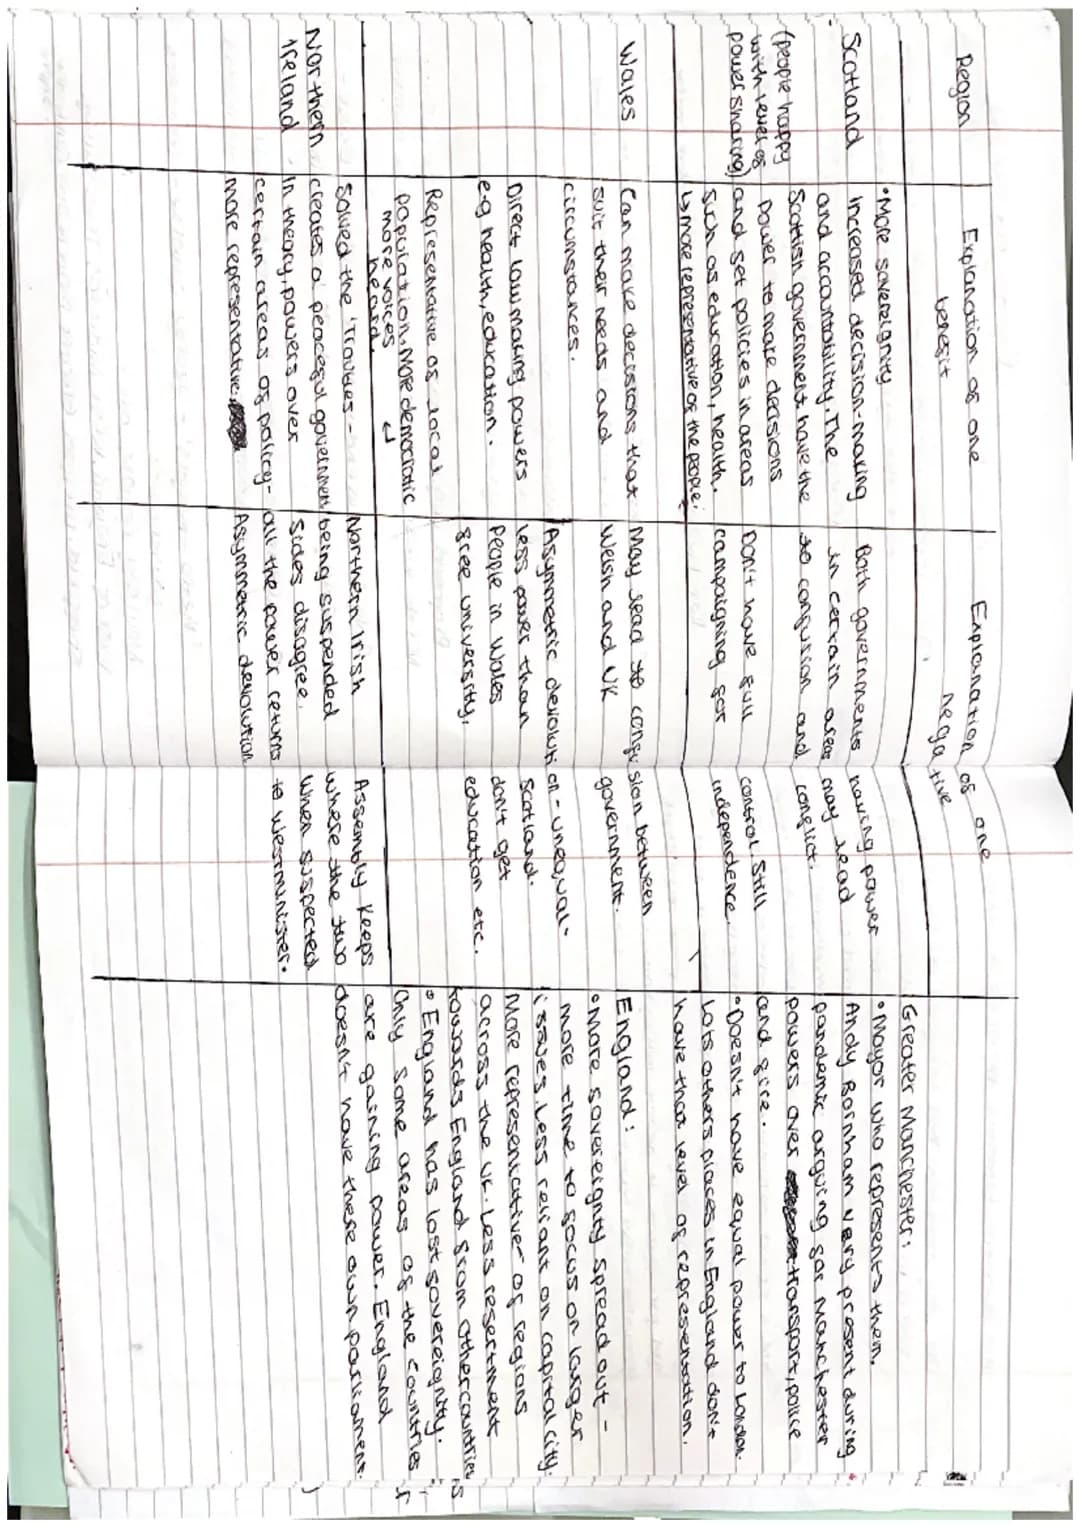 Region
Explanation of one
benefit
Explanation of one
negative
Scotland
(people happy
with level of
power sharing)
• More sovereignty
Increased decision-making
and accountability. The
Scottish government have the
power to make decisions
and set policies in areas
such as education, health.
↳ more representative of the people.
Both governments having power
in certain areas may lead
to confusion and conflict.
Don't have full control. Still
campaigning for independence.
Wales
Can make decisions that
suit their needs and
circumstances.
Direct law making powers
e.g health, education.
Representative of local
population. More democratic
more voices
heard.
May lead to confusion between
Welsh and UK government.
Asymmetric devolution - unequal.
Less power than Scotland.
People in Wales don't get
free university, education etc.
Northern
Ireland
Solved the 'Troubles -
creates a peaceful government
In theory, powers over
certain areas of policy -
more representative.
Northern Irish Assembly keeps
being suspended where the two
sides disagree. When suspected
all the power returns to Westminister.
Asymmetric devolution
Greater Manchester:
• Mayor who represents them.
Andy Bornham very present during
pandemic arguing for Manchester
powers over transport, police
and fire.
• Doesn't have equal power to London.
Lots others places in England don't
have that level of representation.
England:
• More sovereignty spread out -
more time to focus on larger
issues. Less reliant on capital city.
More representative of regions
across the UK. Less resertment
towards England from other countries
• England has lost sovereignty.
Only some areas of the countries
are gaining power. England
doesn't have these own parliament.